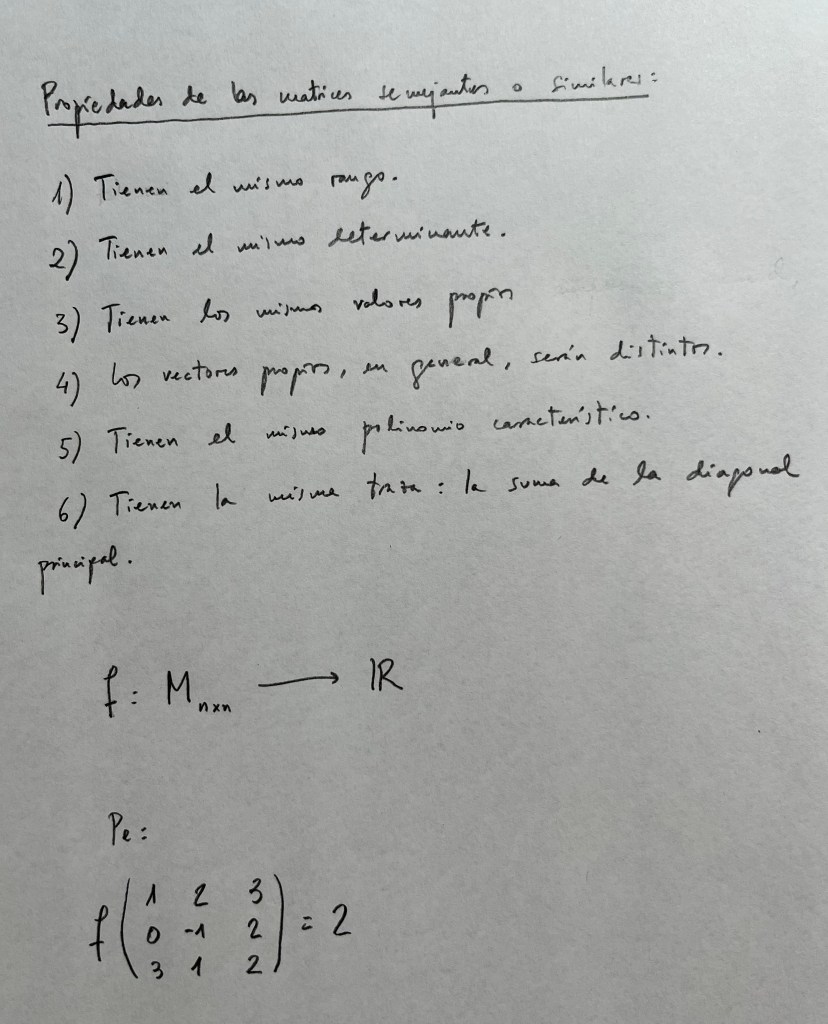 Propiedades de las matrices semejantes o similares:
1) Tienen el mismo rango.
2) Tienen el mismo determinante.
3) Tienen los mismos valores propios
4) Los vectores propios, en general, serán distintos.
5) Tienen el mismo polinomio característico.
6) Tienen la misma traza: la suma de la diagonal
principal.
f: M n×n ⟶ ℝ
Pe:
f ( 1 2 3
0 -1 2
3 1 2 ) = 2